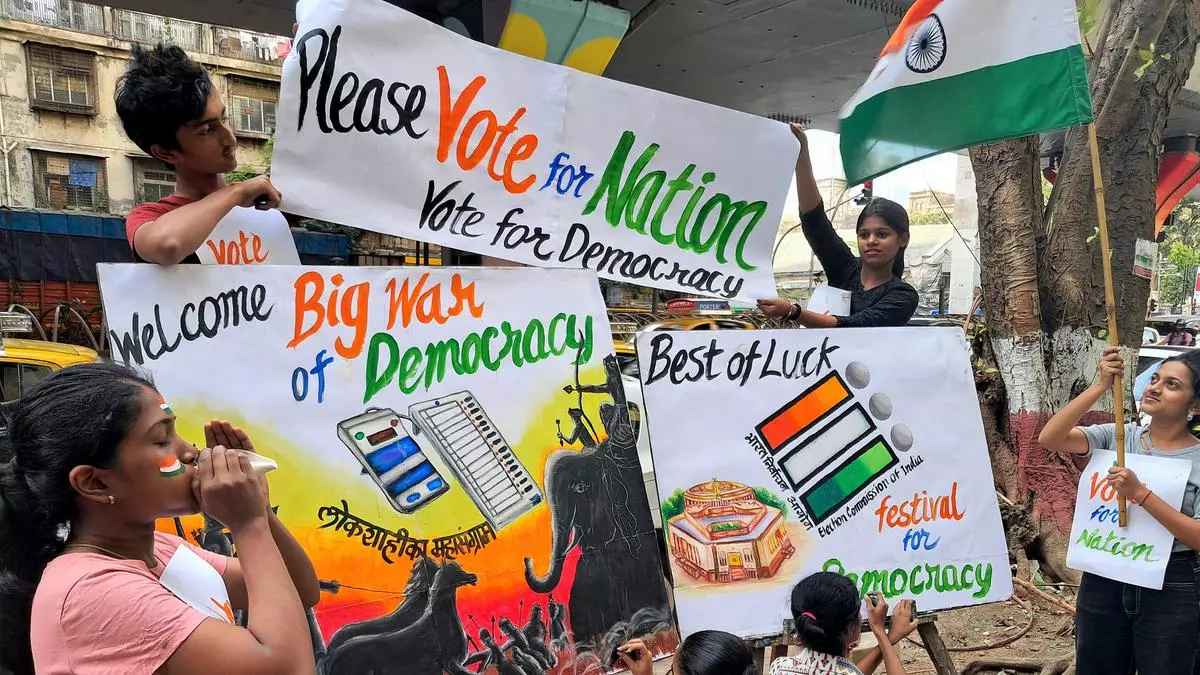 Please Vote for Nation
Vote for Democracy
Vote
Welcome Big War
of Democracy
लोकशाही का महासंग्राम
Best of Luck
भारत निर्वाचन आयोग
Election Commission of India
festival
for
Democracy
Vote
for
Nation
PORTER